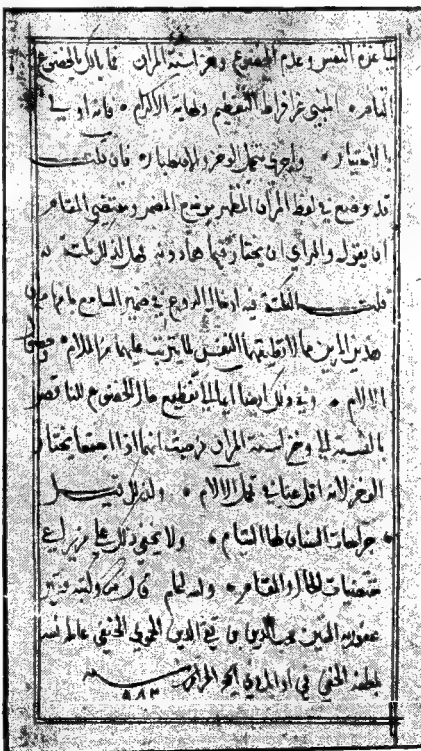 عزة النفس وعدم الخضوع وخز أسنة المران فما بالك بالخضوع
التام المبني عن افراط التعظيم ونهاية الاكرام فانه اولى
بالاختيار واحرى بتحمل الوخز والاصطبار فان قلت
قد وضع في لفظ المران المظهر موضع المضمر ومقتضى المقام
ان يقول والمراي ان يختار فيها هاد ونه فهل لذلك نكتة
قلت النكتة فيه ادخال الروع في ضمير السامع
هذين الامرين مما لا تطيقهما النفس لما يترتب عليهما من الملام
الالام وفي ذلك ايضا ايماء الى تفظيع حال الخضوع للناقص
بالنسبة الى وخز اسنة المران من حيث انهما اذا اجتمعا يختار
الوخز لانه اقل عناء في تحمل الالام ولذلك قيل
جراحات السنان لها التيام ولا يخفى ذلك على من يراعي
مقتضيات الحال والمقام والسلام قال ذلك وكتبه فقير
عفو ربه المعين محب الدين بن تقي الدين الحموي الحنفي عامله الله
بلطفه الخفي في اوائل محرم الحرام سنة
٩٨٣